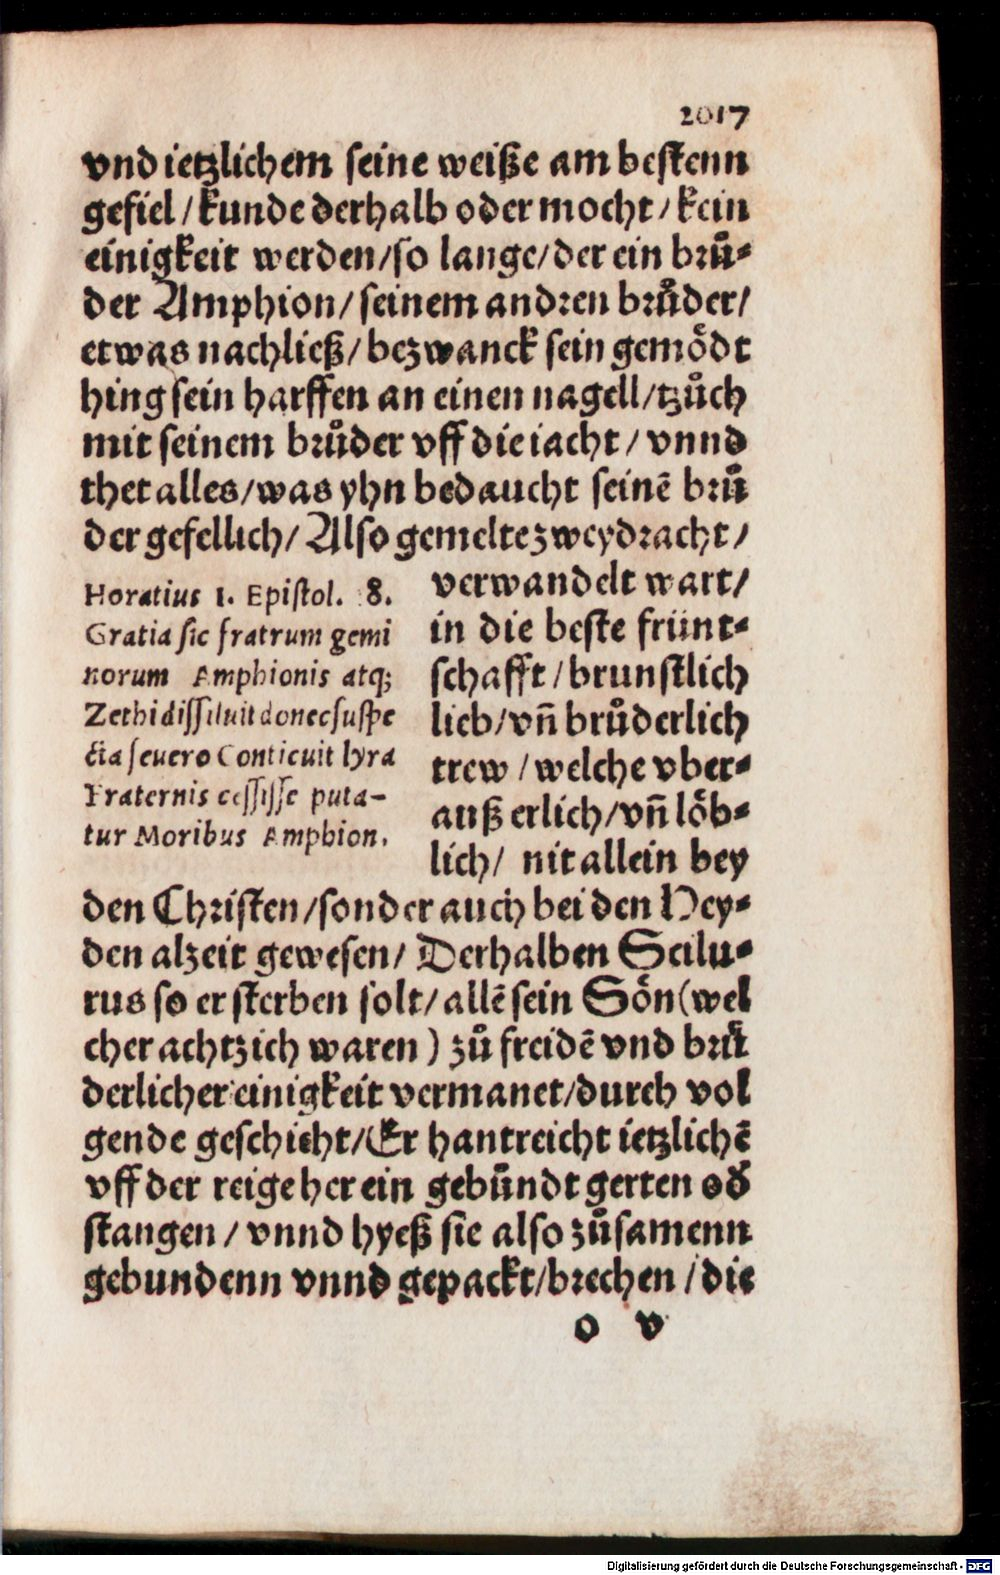 2017
vnd ietzlichem seine weiße am bestenn
gefiel / kunde derhalb oder mocht / kein
einigkeit werden/so lange/der ein brů⸗
der Amphion/ seinem andren brůder/
etwas nachließ/ bezwanck sein gemödt
hing sein harffen an einen nagell/tzůch
mit seinem brůder vff die iacht / vnnd
thet alles/was yhn bedaucht seinē brů
der gefellich/ Also gemelte zweydracht/
Horatius 1. Epistol. 8.
Gratia sic fratrum gemi
norum Amphionis atq;
Zethi dissiluit donec suspe
cta seuero Conticuit lyra
Fraternis cessisse puta-
tur Moribus Amphion.
verwandelt wart/
in die beste frünt⸗
schafft / brunstlich
lieb/vñ brůderlich
trew / welche vber⸗
auß erlich/vñ löb⸗
lich/ nit allein bey
den Christen/sonder auch bei den Hey⸗
den alzeit gewesen/ Derhalben Scilu⸗
rus so er sterben solt/ allē sein Sön (wel
cher achtzich waren ) zů freidē vnd brů
derlicher einigkeit vermanet/durch vol
gende geschicht/Er hantreicht ietzlichē
vff der reige her ein gebündt gerten od̕
stangen / vnnd hyeß sie also zůsamenn
gebundenn vnnd gepackt/brechen / die
o v
Digitalisierung gefördert durch die Deutsche Forschungsgemeinschaft - DFG